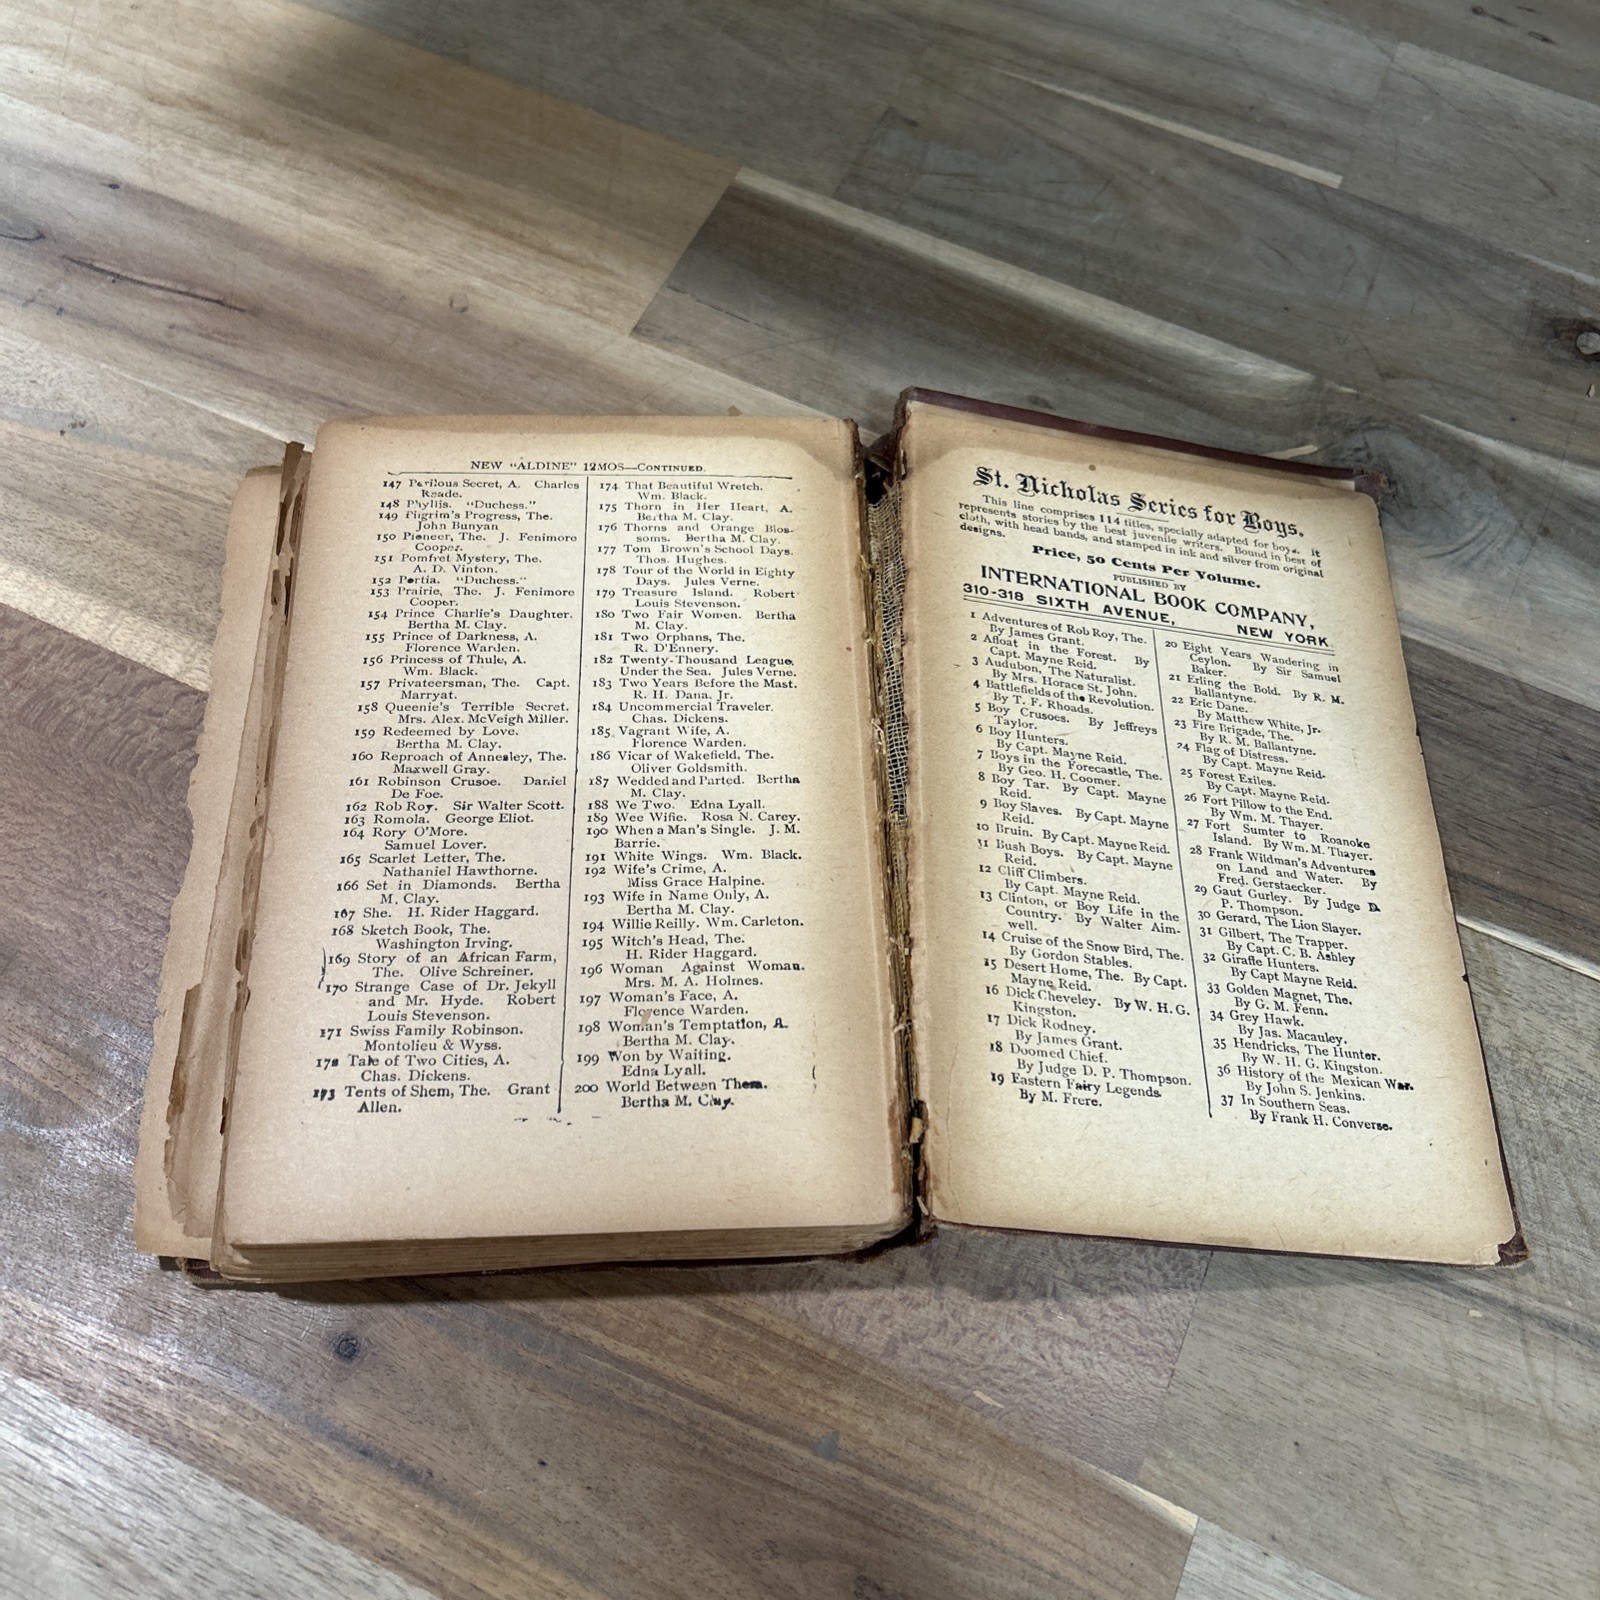 NEW "ALDINE" 12MOS—CONTINUED.
147 Perilous Secret, A. Charles
Reade.
148 Phyllis. "Duchess."
149 Pilgrim's Progress, The.
John Bunyan
150 Pioneer, The. J. Fenimore
Cooper.
151 Pomfret Mystery, The.
A. D. Vinton.
152 Portia. "Duchess."
153 Prairie, The. J. Fenimore
Cooper.
154 Prince Charlie's Daughter.
Bertha M. Clay.
155 Prince of Darkness, A.
Florence Warden.
156 Princess of Thule, A.
Wm. Black.
157 Privateersman, The. Capt.
Marryat.
158 Queenie's Terrible Secret.
Mrs. Alex. McVeigh Miller.
159 Redeemed by Love.
Bertha M. Clay.
160 Reproach of Annesley, The.
Maxwell Gray.
161 Robinson Crusoe. Daniel
De Foe.
162 Rob Roy. Sir Walter Scott.
163 Romola. George Eliot.
164 Rory O'More.
Samuel Lover.
165 Scarlet Letter, The.
Nathaniel Hawthorne.
166 Set in Diamonds. Bertha
M. Clay.
167 She. H. Rider Haggard.
168 Sketch Book, The.
Washington Irving.
169 Story of an African Farm,
The. Olive Schreiner.
170 Strange Case of Dr. Jekyll
and Mr. Hyde. Robert
Louis Stevenson.
171 Swiss Family Robinson.
Montolieu & Wyss.
172 Tale of Two Cities, A.
Chas. Dickens.
173 Tents of Shem, The. Grant
Allen.
174 That Beautiful Wretch.
Wm. Black.
175 Thorn in Her Heart, A.
Bertha M. Clay.
176 Thorns and Orange Blos-
soms. Bertha M. Clay.
177 Tom Brown's School Days.
Thos. Hughes.
178 Tour of the World in Eighty
Days. Jules Verne.
179 Treasure Island. Robert
Louis Stevenson.
180 Two Fair Women. Bertha
M. Clay.
181 Two Orphans, The.
R. D'Ennery.
182 Twenty-Thousand League.
Under the Sea. Jules Verne.
183 Two Years Before the Mast.
R. H. Dana, Jr.
184 Uncommercial Traveler.
Chas. Dickens.
185 Vagrant Wife, A.
Florence Warden.
186 Vicar of Wakefield, The.
Oliver Goldsmith.
187 Wedded and Parted. Bertha
M. Clay.
188 We Two. Edna Lyall.
189 Wee Wifie. Rosa N. Carey.
190 When a Man's Single. J. M.
Barrie.
191 White Wings. Wm. Black.
192 Wife's Crime, A.
Miss Grace Halpine.
193 Wife in Name Only, A.
Bertha M. Clay.
194 Willie Reilly. Wm. Carleton.
195 Witch's Head, The.
H. Rider Haggard.
196 Woman Against Woman.
Mrs. M. A. Holmes.
197 Woman's Face, A.
Florence Warden.
198 Woman's Temptation, A.
Bertha M. Clay.
199 Won by Waiting.
Edna Lyall.
200 World Between Them.
Bertha M. Clay.
St. Nicholas Series for Boys.
This line comprises 114 titles, specially adapted for boys. It
represents stories by the best juvenile writers. Bound in best of
cloth, with head bands, and stamped in ink and silver from original
designs.
Price, 50 Cents Per Volume.
PUBLISHED BY
INTERNATIONAL BOOK COMPANY,
310-318 SIXTH AVENUE, NEW YORK
1 Adventures of Rob Roy, The.
By James Grant.
2 Afloat in the Forest. By
Capt. Mayne Reid.
3 Audubon, The Naturalist.
By Mrs. Horace St. John.
4 Battlefields of the Revolution.
By T. F. Rhoads.
5 Boy Crusoes. By Jeffreys
Taylor.
6 Boy Hunters.
By Capt. Mayne Reid.
7 Boys in the Forecastle, The.
By Geo. H. Coomer.
8 Boy Tar. By Capt. Mayne
Reid.
9 Boy Slaves. By Capt. Mayne
Reid.
10 Bruin. By Capt. Mayne Reid.
11 Bush Boys. By Capt. Mayne
Reid.
12 Cliff Climbers.
By Capt. Mayne Reid.
13 Clinton, or Boy Life in the
Country. By Walter Aim-
well.
14 Cruise of the Snow Bird, The.
By Gordon Stables.
15 Desert Home, The. By Capt.
Mayne Reid.
16 Dick Cheveley. By W. H. G.
Kingston.
17 Dick Rodney.
By James Grant.
18 Doomed Chief.
By Judge D. P. Thompson.
19 Eastern Fairy Legends.
By M. Frere.
20 Eight Years Wandering in
Ceylon. By Sir Samuel
Baker.
21 Erling the Bold. By R. M.
Ballantyne.
22 Eric Dane.
By Matthew White, Jr.
23 Fire Brigade, The.
By R. M. Ballantyne.
24 Flag of Distress.
By Capt. Mayne Reid.
25 Forest Exiles.
By Capt. Mayne Reid.
26 Fort Pillow to the End.
By Wm. M. Thayer.
27 Fort Sumter to Roanoke
Island. By Wm. M. Thayer.
28 Frank Wildman's Adventures
on Land and Water. By
Fred. Gerstaecker.
29 Gaut Gurley. By Judge D.
P. Thompson.
30 Gerard, The Lion Slayer.
31 Gilbert, The Trapper.
By Capt. C. B. Ashley
32 Giraffe Hunters.
By Capt Mayne Reid.
33 Golden Magnet, The.
By G. M. Fenn.
34 Grey Hawk.
By Jas. Macauley.
35 Hendricks, The Hunter.
By W. H. G. Kingston.
36 History of the Mexican War.
By John S. Jenkins.
37 In Southern Seas.
By Frank H. Converse.